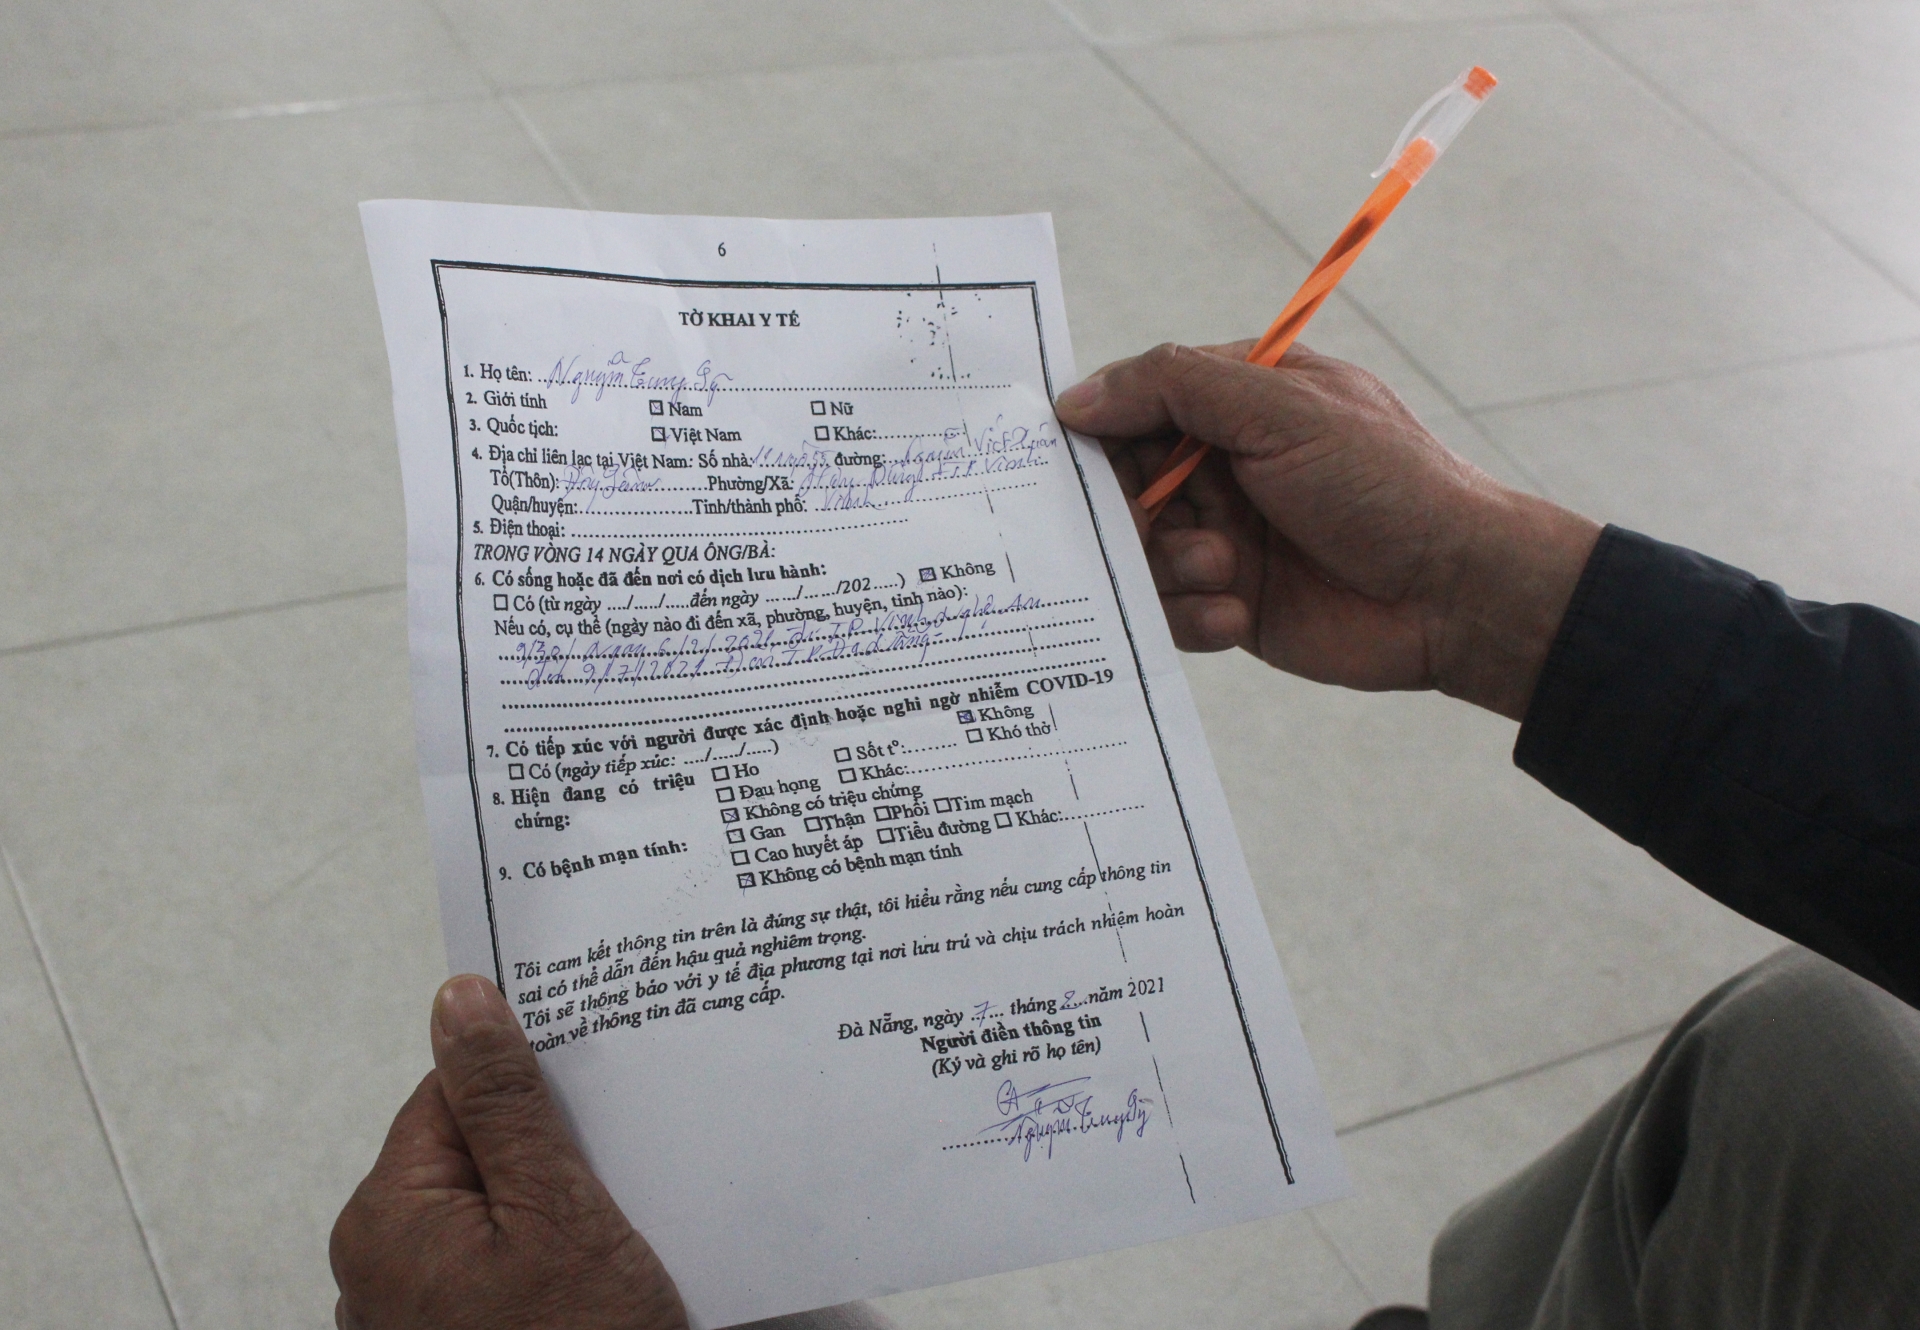 6
TỜ KHAI Y TẾ
1. Họ tên: Nguyễn Trung
2. Giới tính ☒ Nam ☐ Nữ
3. Quốc tịch: ☒ Việt Nam ☐ Khác:
4. Địa chỉ liên lạc tại Việt Nam: Số nhà: đường: Nguyễn Viết Xuân
Tổ(Thôn): Phường/Xã: Hưng Dũng TP Vinh
Quận/huyện: Tỉnh/thành phố: Vinh
5. Điện thoại:
TRONG VÒNG 14 NGÀY QUA ÔNG/BÀ:
6. Có sống hoặc đã đến nơi có dịch lưu hành:
☐ Có (từ ngày ..../...../.....đến ngày ....../....../202.....) ☒ Không
Nếu có, cụ thể (ngày nào đi đến xã, phường, huyện, tỉnh nào):
Ngày 6/2/2021 TP Vinh Nghệ An
2021 TP Đà Nẵng
7. Có tiếp xúc với người được xác định hoặc nghi ngờ nhiễm COVID-19
☐ Có (ngày tiếp xúc: ..../...../.....) ☒ Không
8. Hiện đang có triệu chứng: ☐ Ho ☐ Sốt t°: ☐ Khó thở
☐ Đau họng ☐ Khác:
☒ Không có triệu chứng
9. Có bệnh mạn tính: ☐ Gan ☐ Thận ☐ Phổi ☐ Tim mạch
☐ Cao huyết áp ☐ Tiểu đường ☐ Khác:
☒ Không có bệnh mạn tính
Tôi cam kết thông tin trên là đúng sự thật, tôi hiểu rằng nếu cung cấp thông tin
sai có thể dẫn đến hậu quả nghiêm trọng.
Tôi sẽ thông báo với y tế địa phương tại nơi lưu trú và chịu trách nhiệm hoàn
toàn về thông tin đã cung cấp.
Đà Nẵng, ngày 7 tháng 2 năm 2021
Người điền thông tin
(Ký và ghi rõ họ tên)
Nguyễn Trung